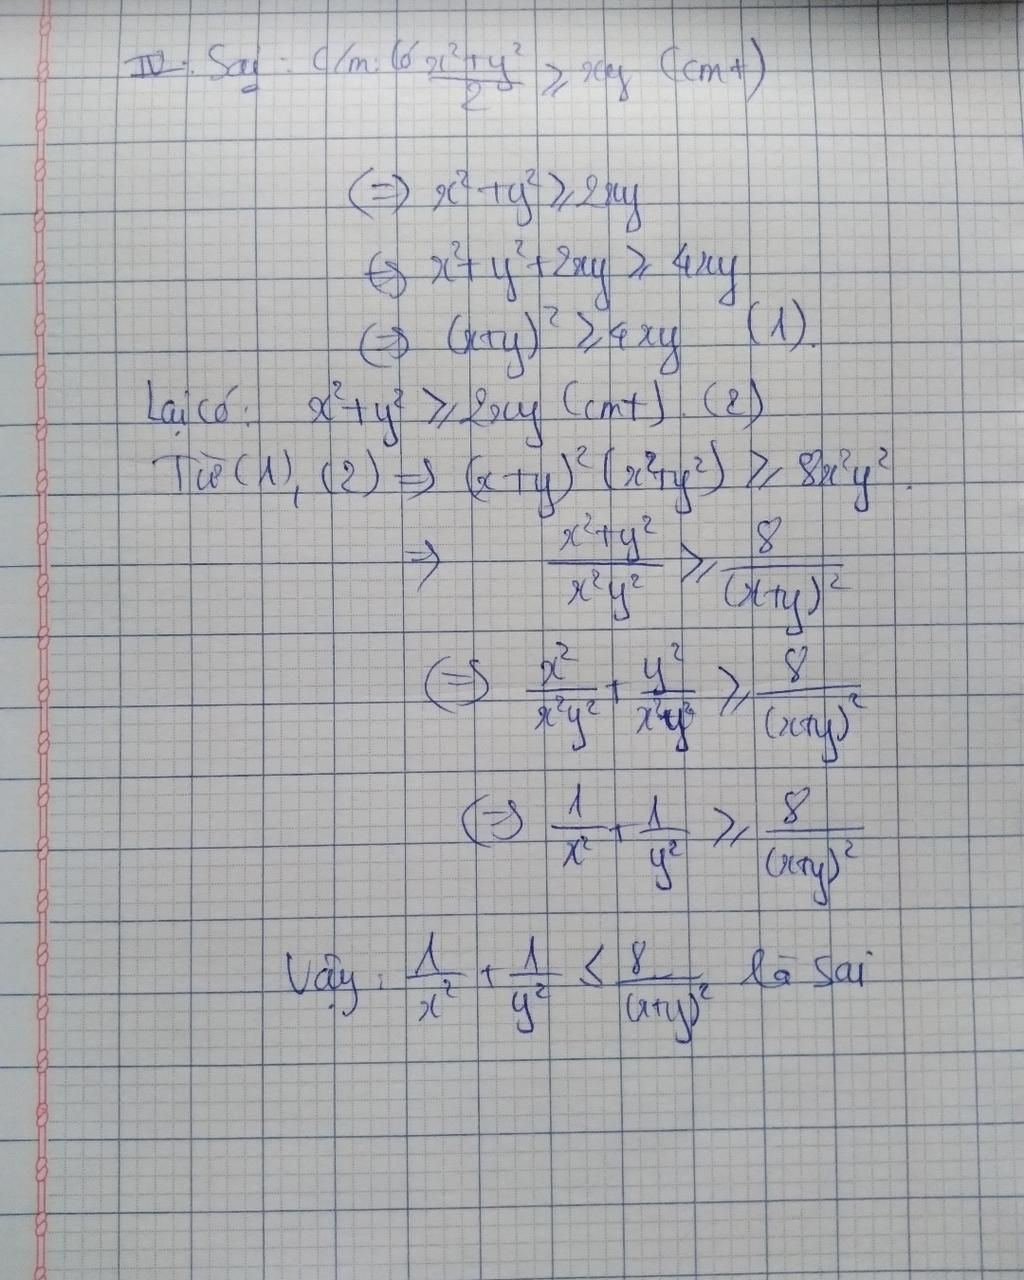 IV. Sai: C/m: Có $\frac{x^2+y^2}{2} \geq xy$ (cmt)
(=) $x^2+y^2 \geq 2xy$
(=) $x^2+y^2+2xy \geq 4xy$
(=) $(x+y)^2 \geq 4xy$ (1).
Lại có: $x^2+y^2 \geq 2xy$ (cmt). (2)
Từ (1), (2) => $(x+y)^2(x^2+y^2) \geq 8x^2y^2$.
=> $\frac{x^2+y^2}{x^2y^2} \geq \frac{8}{(x+y)^2}$
(=) $\frac{x^2}{x^2y^2} + \frac{y^2}{x^2y^2} \geq \frac{8}{(x+y)^2}$
(=) $\frac{1}{x^2} + \frac{1}{y^2} \geq \frac{8}{(x+y)^2}$
Vậy: $\frac{1}{x^2} + \frac{1}{y^2} \leq \frac{8}{(x+y)^2}$ là sai